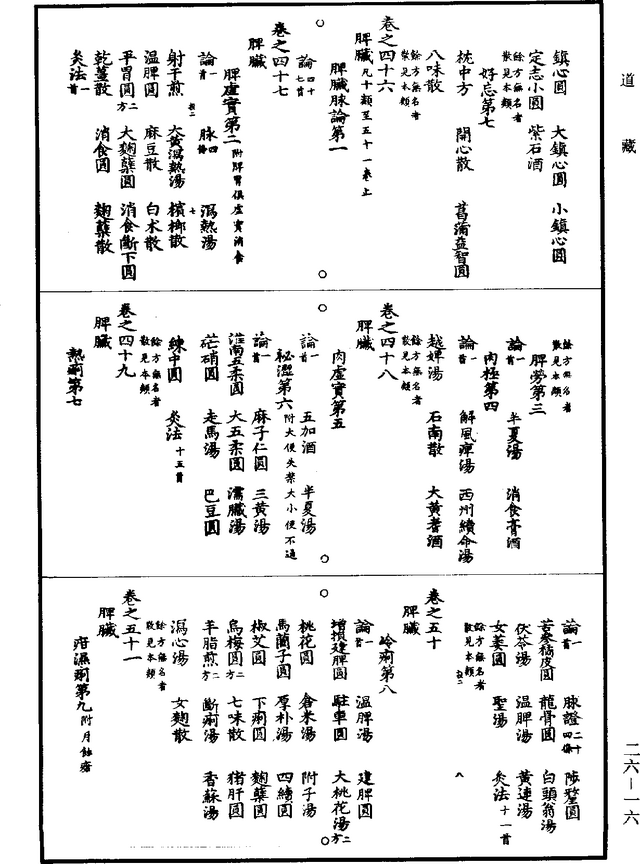 道藏
鎮心圓 大鎮心圓 小鎮心圓
定志小圓 紫石酒
餘方無名者散見本類
好忘第七
枕中方 開心散 菖蒲益智圓
八味散
餘方無名者散見本類
卷之四十六
脾臟凡十類至五十一卷上
脾臟脉論第一
論四十七首
卷之四十七
脾臟
脾虛實第二附脾胃俱虛實消食
論一首 脉四條 瀉熱湯
射干煎 大黃瀉熱湯 檳榔散
溫脾圓 麻豆散 白术散
平胃圓二方 大麴蘗圓 消食斷下圓
乾薑散 消食圓 麴蘗散
灸法一首
餘方無名者散見本類
脾勞第三
論一首 半夏湯 消食膏酒
肉極第四
論一首 解風痺湯 西州續命湯
越婢湯 石南散 大黃耆酒
餘方無名者散見本類
卷之四十八
脾臟
肉虛實第五
論一首 五加酒 半夏湯
秘澀第六附大便失禁大小便不通
論一首 麻子仁圓 三黃湯
淮南五柔圓 大五柔圓 濡臟湯
芒硝圓 走馬湯 巴豆圓
練中圓 灸法十五首
餘方無名者散見本類
卷之四十九
脾臟
熱痢第七
論一首 脉證二十四條 陟釐圓
苦參橘皮圓 龍骨圓 白頭翁湯
茯苓湯 溫脾湯 黃連湯
女萎圓 聖湯 灸法十一首
餘方無名者散見本類
卷之五十
脾臟
冷痢第八
論一首 溫脾湯 建脾圓
增損建脾圓 駐車圓 大桃花湯二方
桃花圓 倉米湯 附子湯
馬藺子圓 厚朴湯 四續圓
椒艾圓 下痢圓 麴蘗圓
烏梅圓二方 七味散 猪肝圓
羊脂煎二方 斷痢湯 香蘇湯
瀉心湯 女麴散
餘方無名者散見本類
卷之五十一
脾臟
疳濕痢第九附月蝕瘡
二六—一六